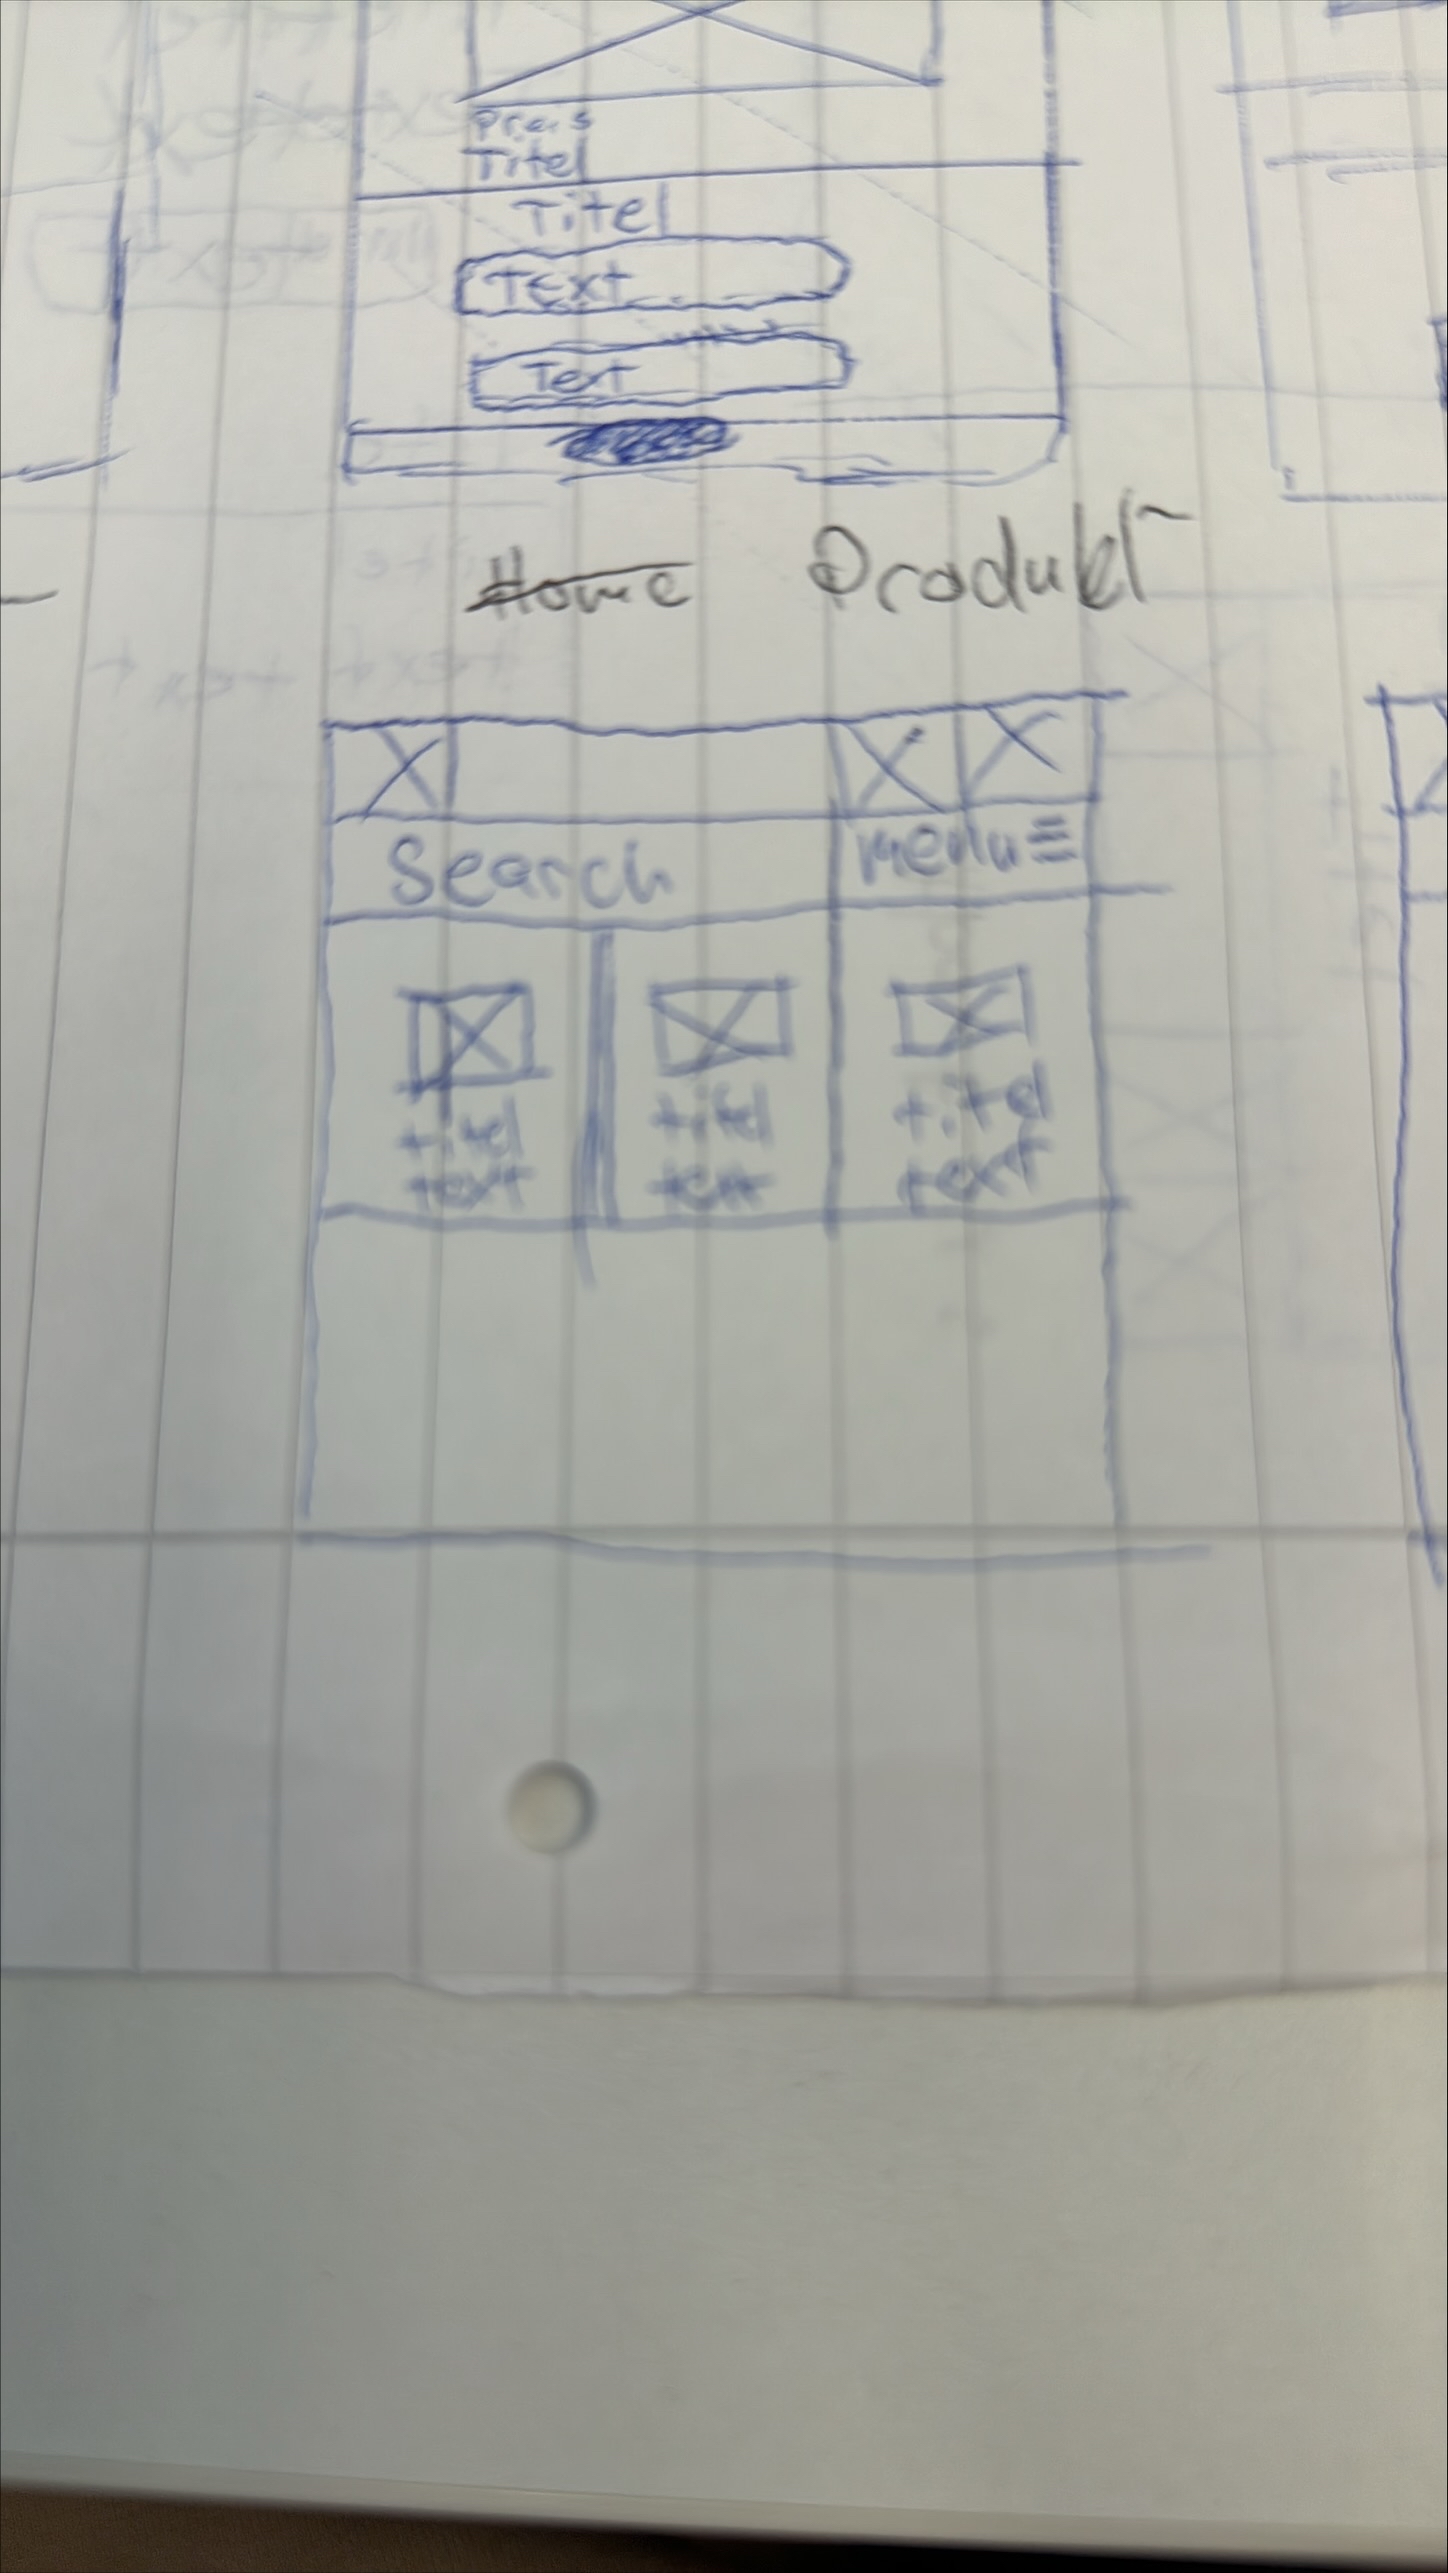 Preis
Titel
Titel
Text
Text
Home Produkt
Search menu
titel titel titel
text text text